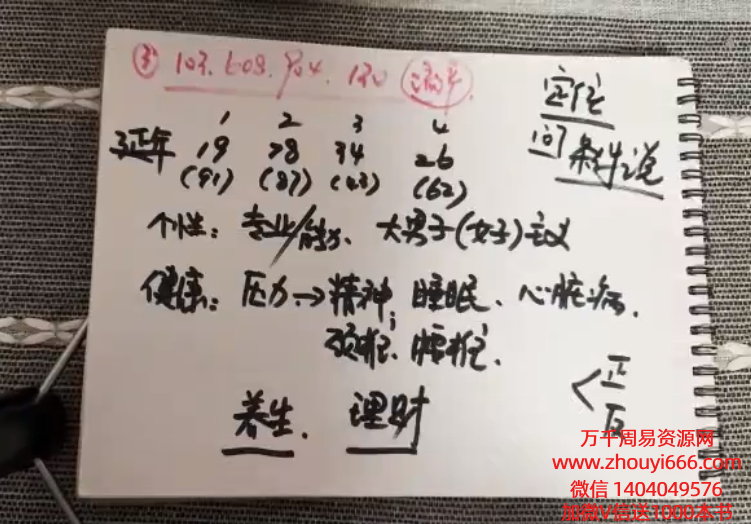 ③ 103. 608. 904. 130
定位
问 条件 说
1 2 3 4
延年 19 78 34 26
(91) (87) (43) (62)
个性：专业/能力、大男子(女子)主义
健康：压力→精神，睡眠、心脏病.
颈椎、腰椎.
<正
反
养生. 理财
万千周易资源网
www.zhouyi666.com
微信 1404049576
加微V信送1000本书